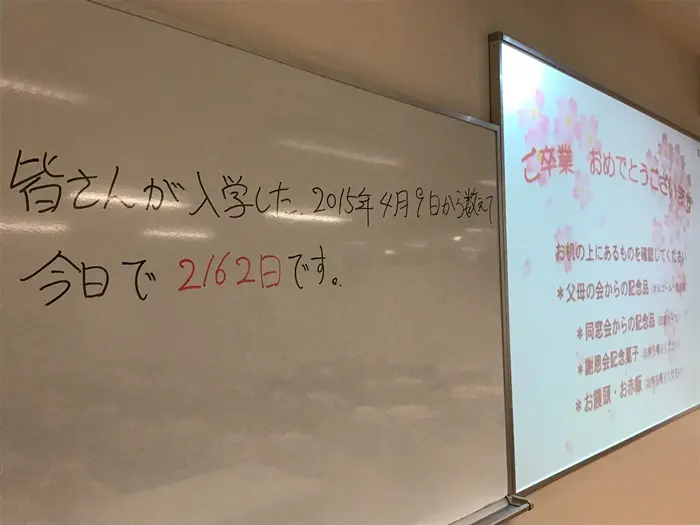 皆さんが入学した、2015年4月9日から数えて
今日で 2162日です。
ご卒業 おめでとうございます
お机の上にあるものを確認してください
＊父母の会からの記念品
＊同窓会からの記念品
＊謝恩会記念菓子（お持ち帰りください）
＊お饅頭・お赤飯（お持ち帰りください）